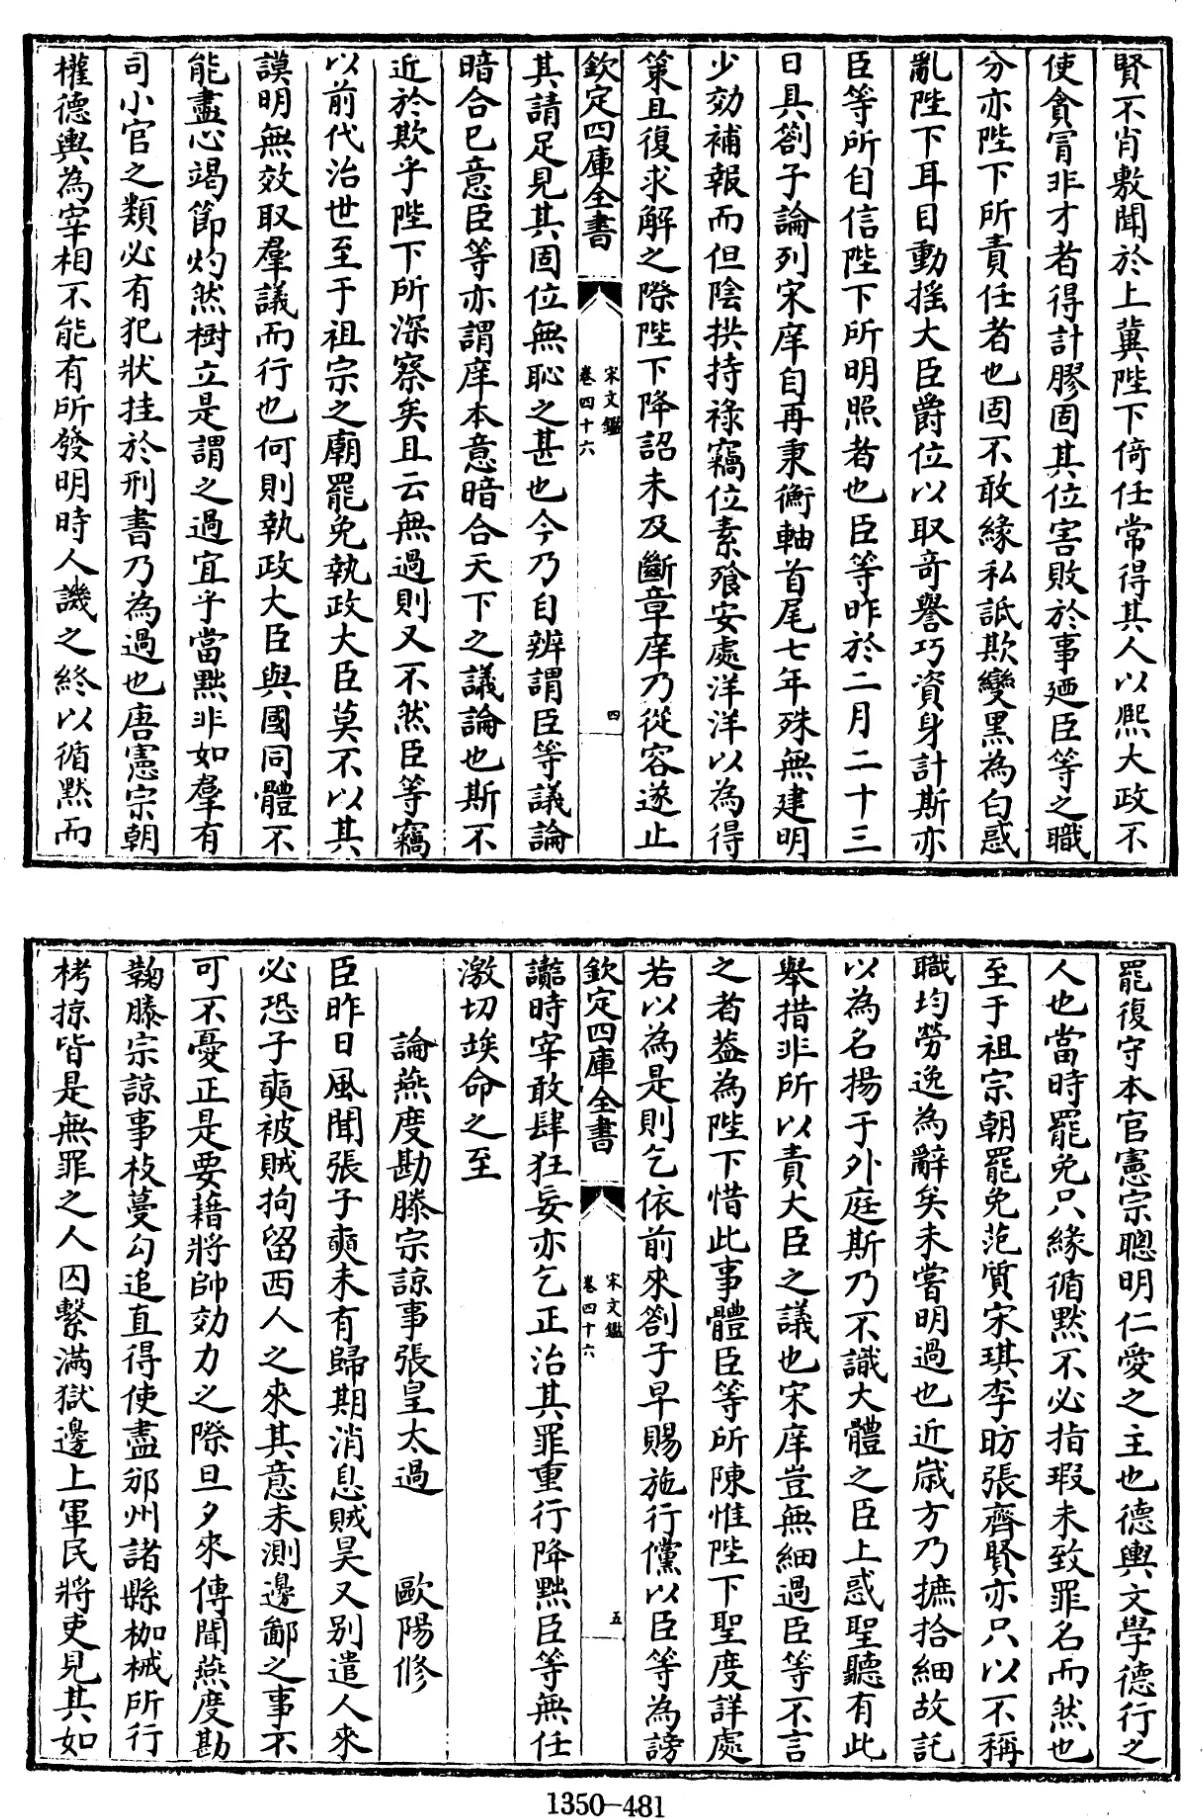 賢不肖敷聞於上冀陛下倚任常得其人以熈大政不
使貪冐非才者得計膠固其位害敗於事廼臣等之職
分亦陛下所責任者也固不敢緣私詆欺變黑為白惑
亂陛下耳目動揺大臣爵位以取奇譽巧資身計斯亦
臣等所自信陛下所明照者也臣等昨於二月二十三
日具劄子論列宋庠自再秉衡軸首尾七年殊無建明
少効補報而但陰拱持祿竊位素飱安處洋洋以為得
策且復求解之際陛下降詔未及斷章庠乃從容遂止
欽定四庫全書
宋文鑑
卷四十六
四
其請足見其固位無恥之甚也今乃自辨謂臣等議論
暗合已意臣等亦謂庠本意暗合天下之議論也斯不
近於欺乎陛下所深察矣且云無過則又不然臣等竊
以前代治世至于祖宗之廟罷免執政大臣莫不以其
謨明無效取羣議而行也何則執政大臣與國同體不
能盡心竭節灼然樹立是謂之過宜乎當黜非如羣有
司小官之類必有犯狀挂於刑書乃為過也唐憲宗朝
權德輿為宰相不能有所發明時人譏之終以循黙而
罷復守本官憲宗聰明仁愛之主也德輿文學德行之
人也當時罷免只緣循黙不必指瑕未致罪名而然也
至于祖宗朝罷免范質宋琪李昉張齊賢亦只以不稱
職均勞逸為辭矣未嘗明過也近歳方乃摭拾細故託
以為名揚于外庭斯乃不識大體之臣上惑聖聽有此
舉措非所以責大臣之議也宋庠豈無細過臣等不言
之者葢為陛下惜此事體臣等所陳惟陛下聖度詳處
若以為是則乞依前來劄子早賜施行儻以臣等為謗
欽定四庫全書
宋文鑑
卷四十六
五
讟時宰敢肆狂妄亦乞正治其罪重行降黜臣等無任
激切竢命之至
論燕度勘滕宗諒事張皇太過　歐陽修
臣昨日風聞張子奭未有歸期消息賊昊又别遣人來
必恐子奭被賊拘留西人之來其意未測邊鄙之事不
可不憂正是要藉將帥効力之際旦夕來傳聞燕度勘
鞫滕宗諒事枝蔓勾追直得使盡邠州諸縣枷械所行
栲掠皆是無罪之人囚繫滿獄邊上軍民將吏見其如
1350-481